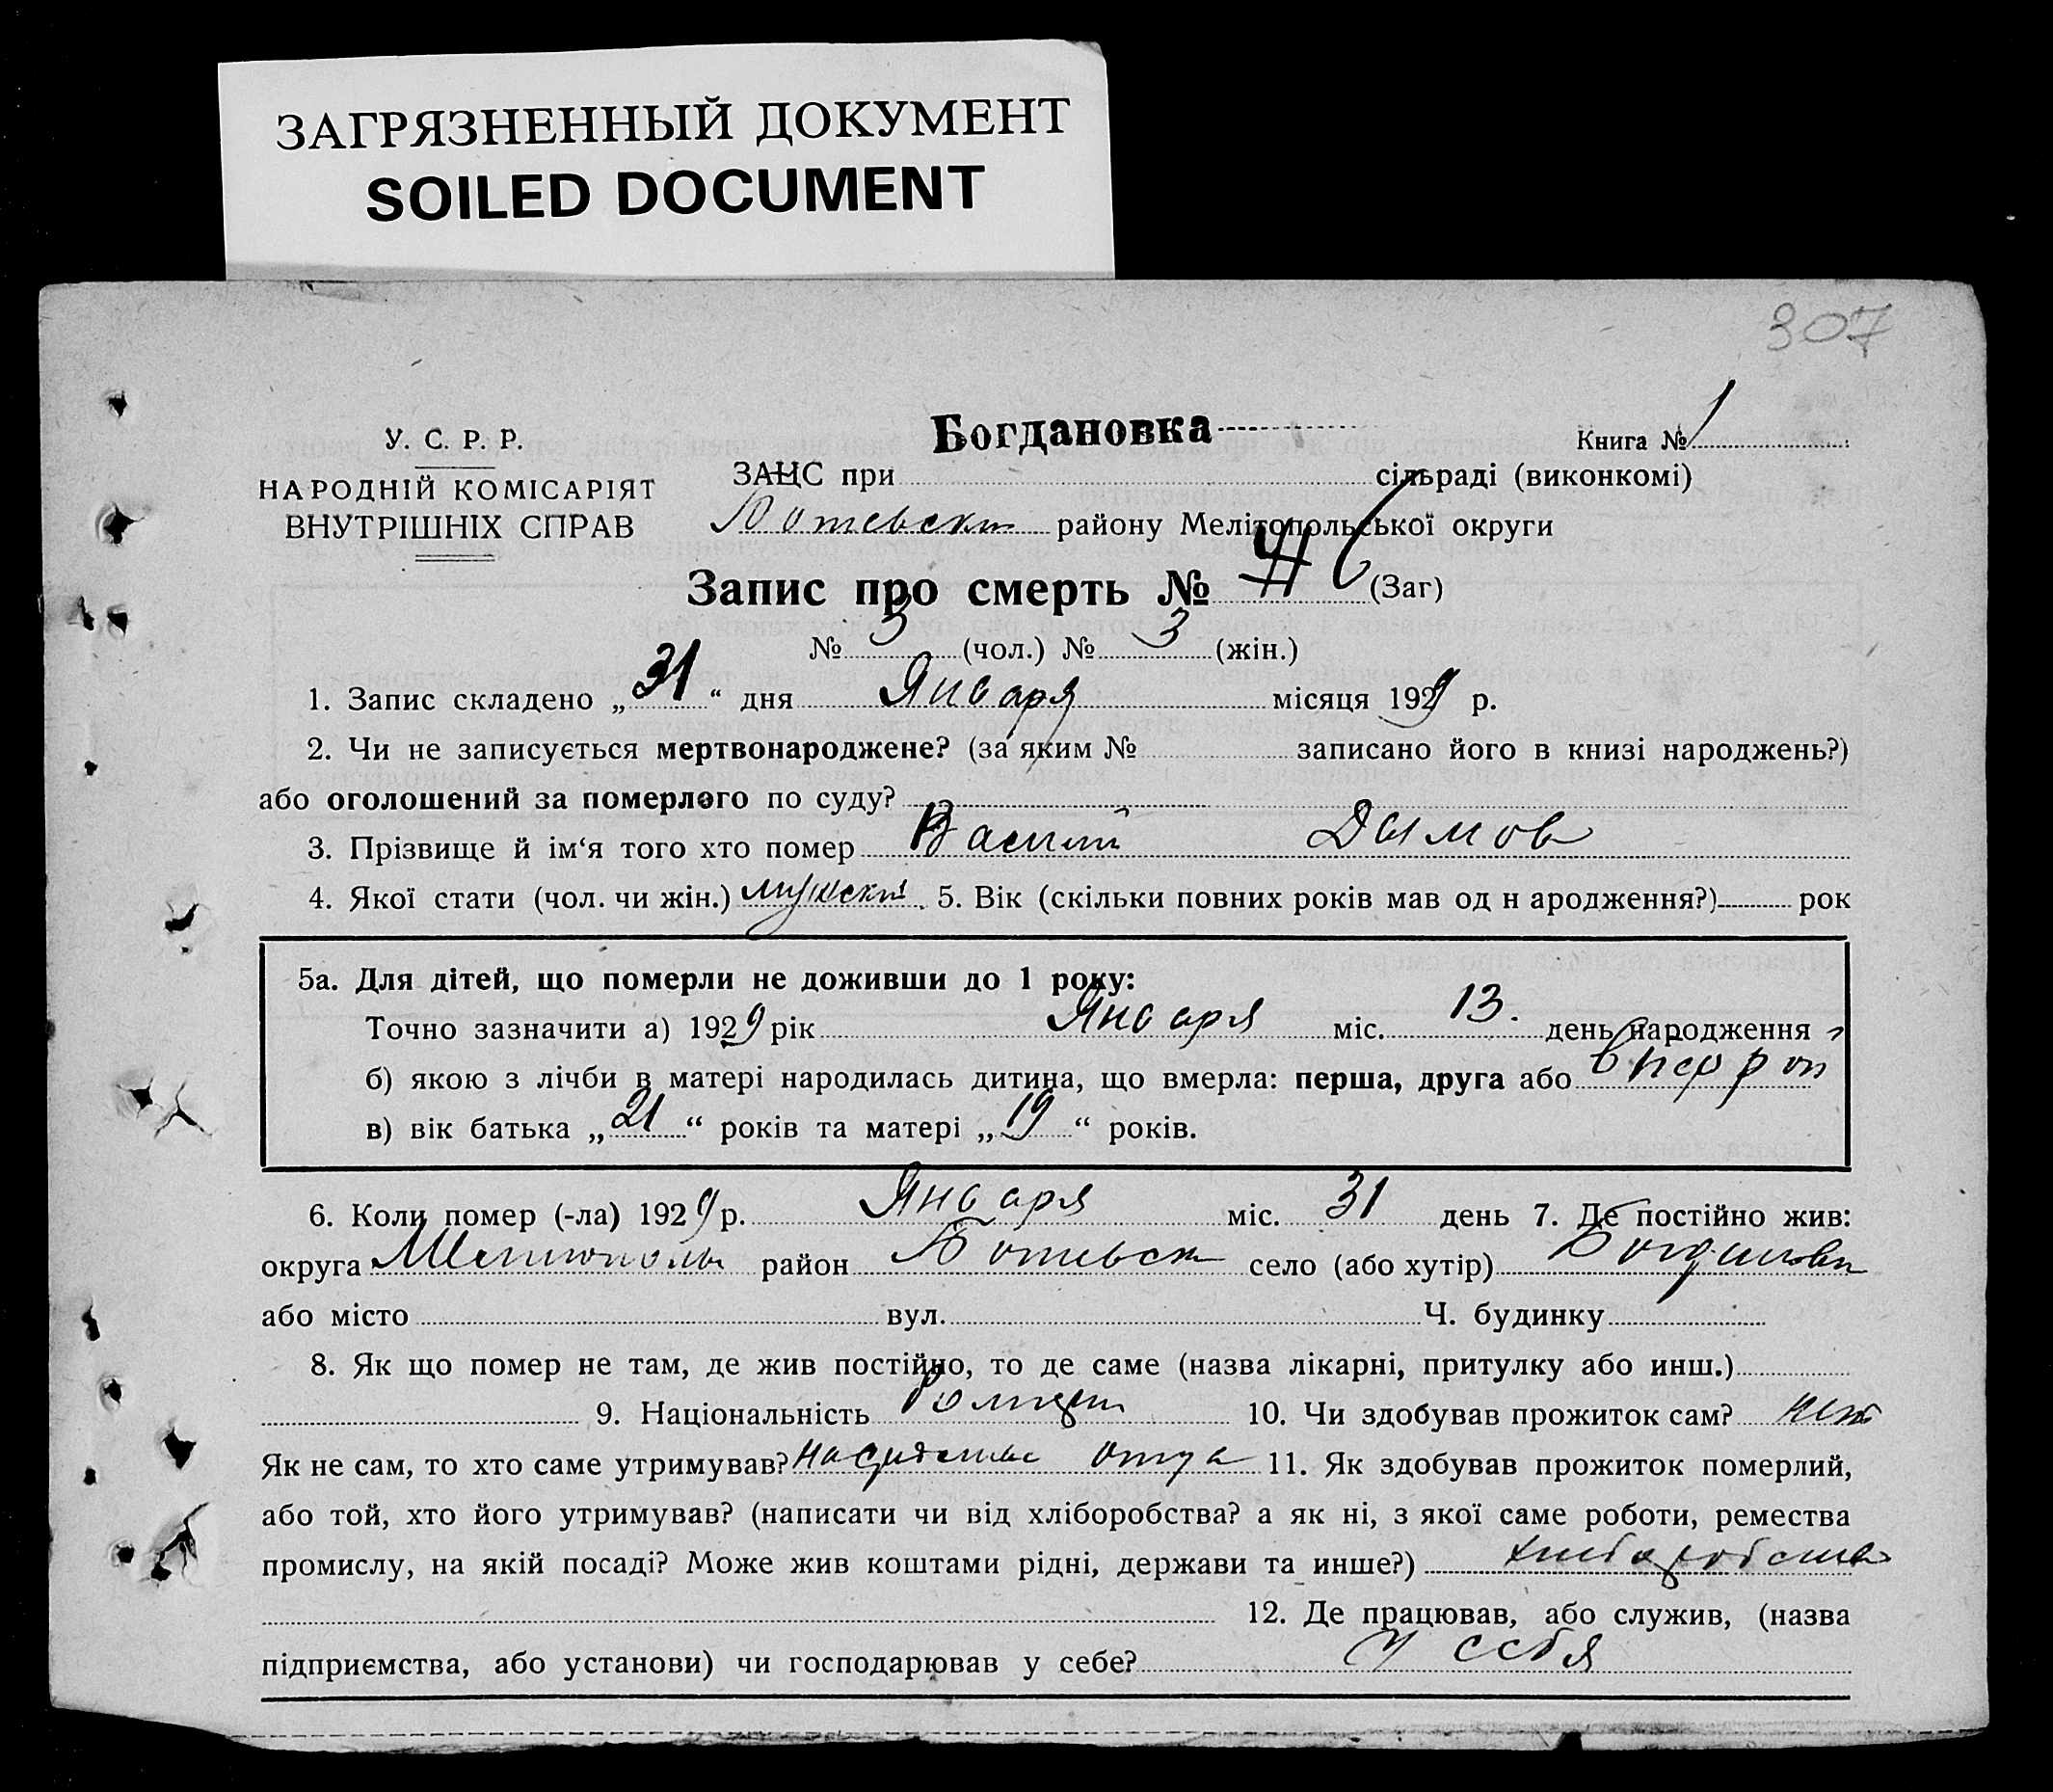 ЗАГРЯЗНЕННЫЙ ДОКУМЕНТ
SOILED DOCUMENT
307
Богдановка
Книга № 1
У. С. Р. Р.
НАРОДНІЙ КОМІСАРІЯТ
ВНУТРІШНІХ СПРАВ
ЗАЦС при сільраді (виконкомі)
Ботевск району Мелітопольської округи
Запис про смерть № 6 (Заг)
№ 3 (чол.) № 3 (жін.)
1. Запис складено „31“ дня Января місяця 1929 р.
2. Чи не записується мертвонароджене? (за яким № записано його в книзі народжень?)
або оголошений за померлого по суду?
3. Прізвище й ім‘я того хто помер Василий Дымов
4. Якої стати (чол. чи жін.) мужской. 5. Вік (скільки повних років мав од н ародження?) рок
5а. Для дітей, що померли не доживши до 1 року:
Точно зазначити а) 1929 рік Января міс. 13. день народження
б) якою з лічби в матері народилась дитина, що вмерла: перша, друга або
в) вік батька „21“ років та матері „19“ років.
6. Коли помер (-ла) 1929 р. Января міс. 31 день 7. Де постійно жив:
округа Мелитополь район Ботевск село (або хутір) Богдановка
або місто вул. Ч. будинку
8. Як що помер не там, де жив постійно, то де саме (назва лікарні, притулку або инш.)
9. Національність 10. Чи здобував прожиток сам? нет
Як не сам, то хто саме утримував? отца 11. Як здобував прожиток померлий,
або той, хто його утримував? (написати чи від хліборобства? а як ні, з якої саме роботи, ремества
промислу, на якій посаді? Може жив коштами рідні, держави та инше?)
12. Де працював, або служив, (назва
підприємства, або установи) чи господарював у себе? у себя